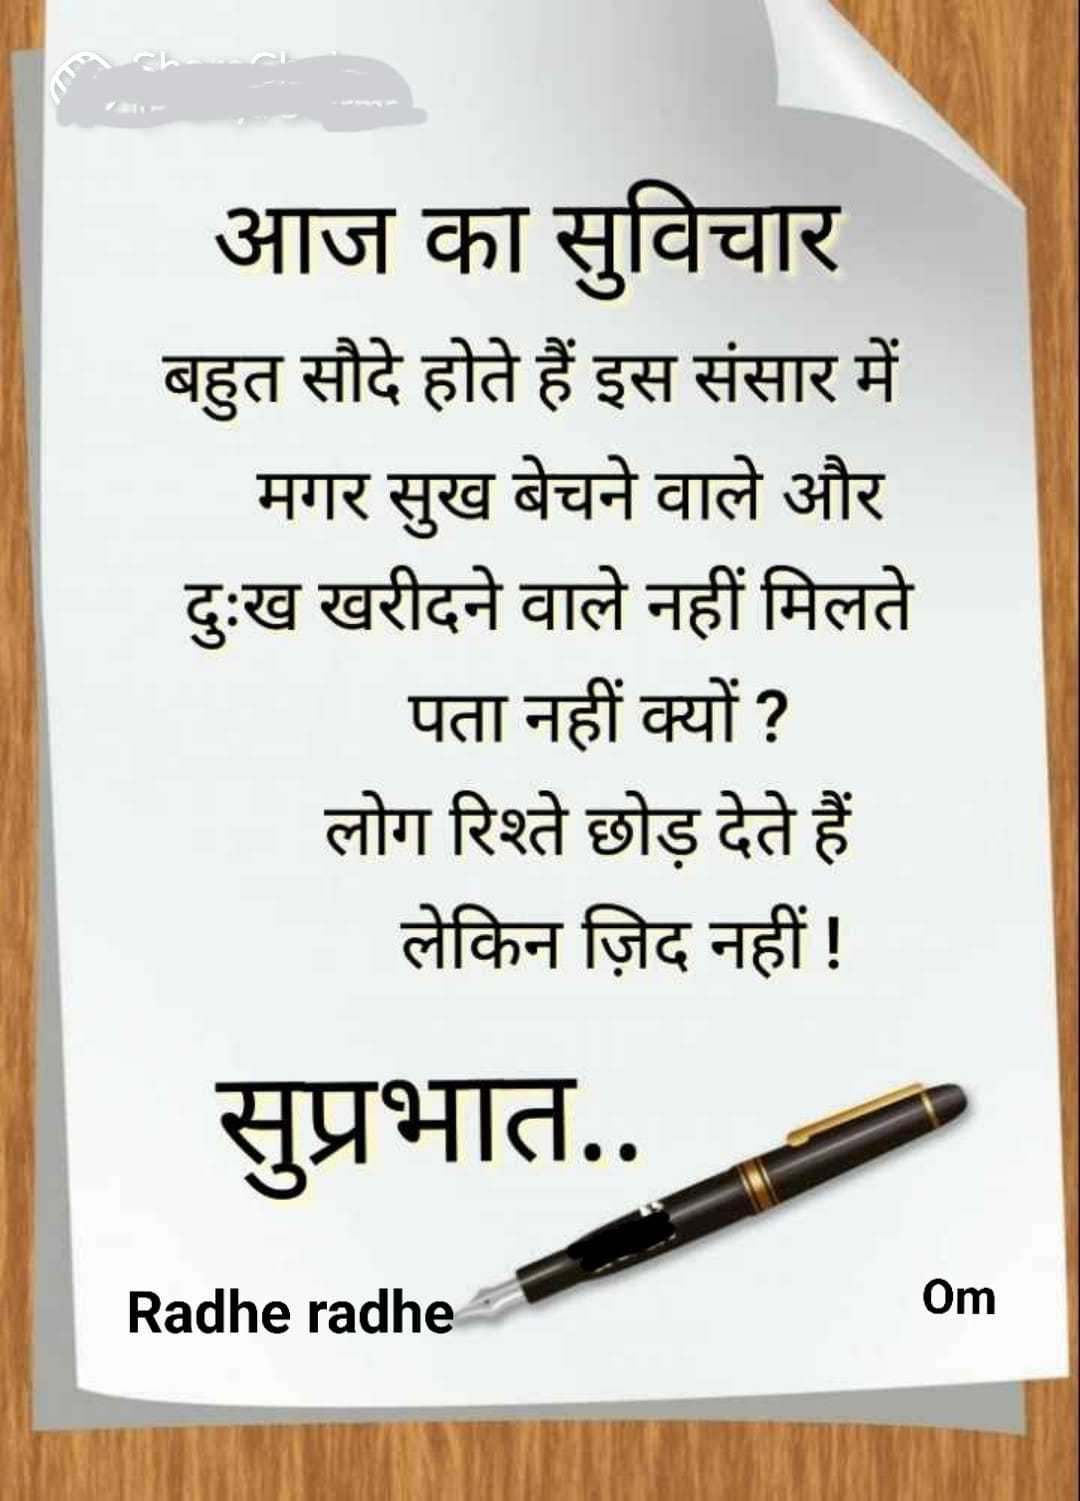 आज का सुविचार
बहुत सौदे होते हैं इस संसार में
मगर सुख बेचने वाले और
दुःख खरीदने वाले नहीं मिलते
पता नहीं क्यों ?
लोग रिश्ते छोड़ देते हैं
लेकिन ज़िद नहीं !
सुप्रभात..
Radhe radhe
Om